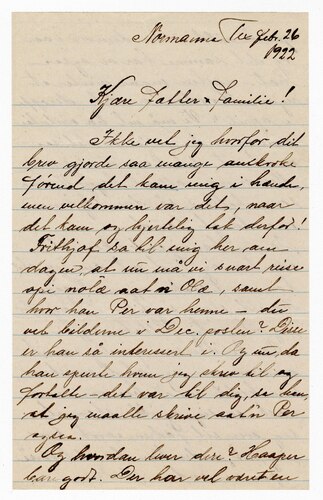 Normanna Tex febr. 26
1922
Kjære Fætter & Familie!
Ikke vet jeg hvorfor dit
brev gjorde saa mange
förend det kom mig i hænde,
men velkommen var det, naar
det kom og hjertelig tak derfor!
Frithjof sa til mig her om
dagen, at nu må vi snart reise
op nola, samt
hvor han Per var henne – du
vet bilderne i Dec. posten? Disse
er han så interessert i. Og nu, da
han spurte hvem jeg skrev til og
fortalte – det var til dig, sa han,
at jeg maatte skrive om Per
også.
Og hvordan lever dere? Haaper
bare godt. Der har vel været en